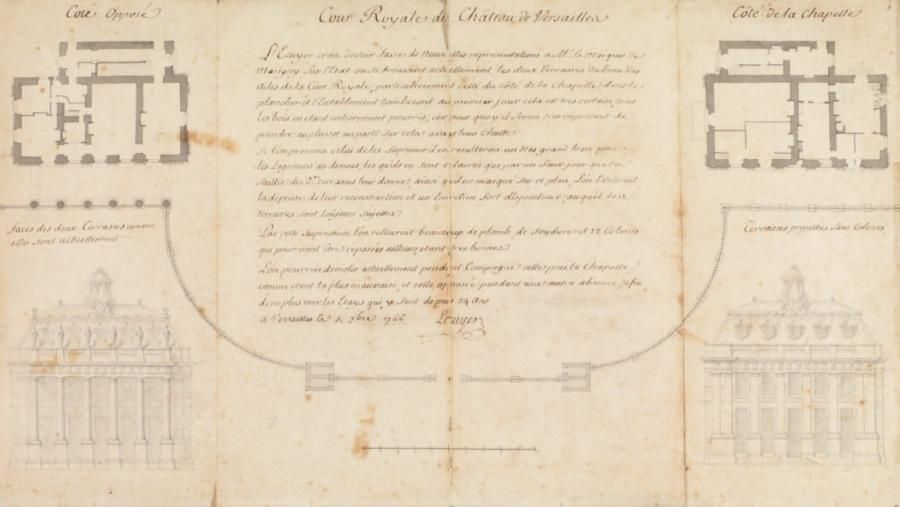 Coté Opposé
Cour Royale du Château de Versailles
Côté de la Chapelle
L'Ecuyer croit devoir faire de nouvelles représentations a M. le Marquis de
Marigny sur l'Etat ou se trouvent actuellement les deux terrasses du bout des
ailes de la Cour Royale, particulierement celle du côté de la Chapelle, dont le
plancher a l'Entablement tomberont au premier jour cela est tres certain, tous
les bois en etant entierement pourris, c'est pour quoy il seroit tres important de
prendre au plutot un parti sur cela avant leur chutte
Si l'on prenoit celui de les suprimer il en resulteroit un tres grand bien pour
les Logemens au dessous, les quels ne sont eclairés que par un faux jour que la
saillie des d. terrasses leur donne, ainsi qu'il est marqué sur ce plan, l'on éviteroit
la depense de leur reconstruction et un Entretien fort dispendieux auquel les
terrasses sont toujours sujettes
Par cette supression l'on retireroit beaucoup de plomb, de soudure et 12 Colonnes
qui pourroient être reposées ailleurs, etant tres bonnes
L'on pourroit demolir actuellement pendant Compiegne celles pres la Chapelle
comme etant la plus mauvaise, et celle opposée pendant une autre absence, afin
de ne plus voir les Etays qui y sont depuis 24 ans
a Versailles le 5. 7bre 1766. Lecuyer
faces des deux Terrasses comme
elles sont actuellement
Terrasses projettés sans Colones